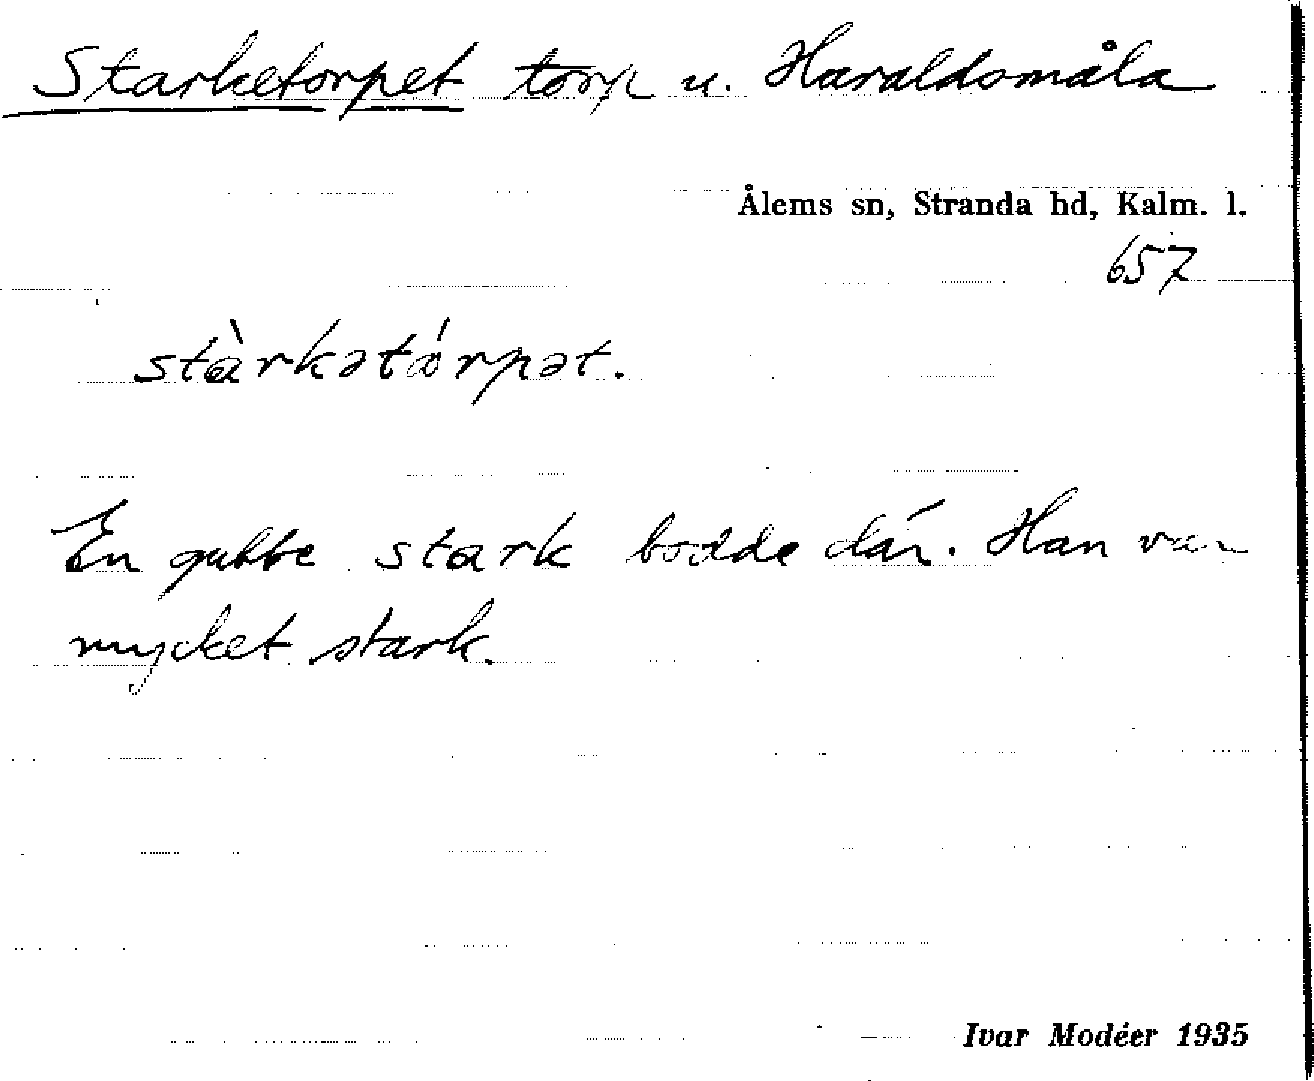 Starketorpet torp u. Haraldsmåla
Ålems sn, Stranda hd, Kalm. l.
657
stàrkətórpət.
En gubbe stark bodde där. Han var
mycket stark.
Ivar Modéer 1935